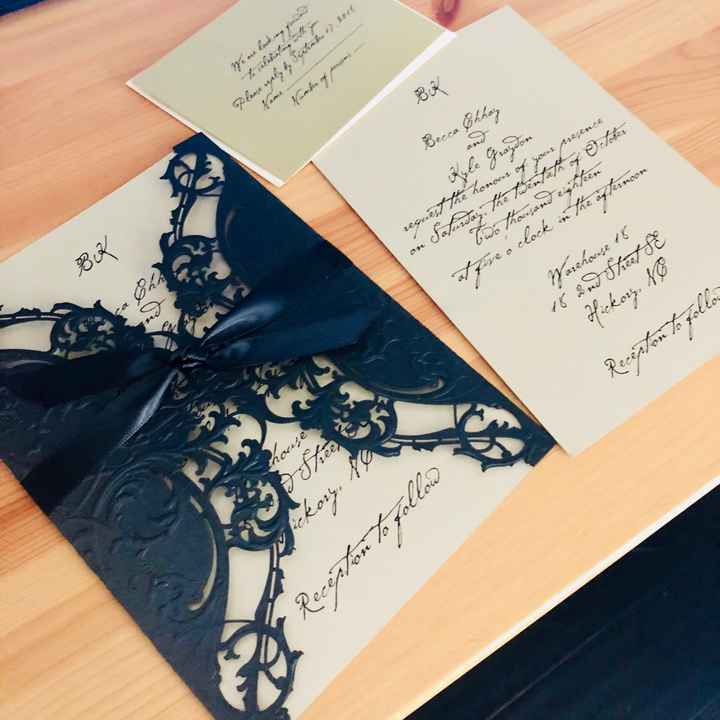 We are looking forward
to celebrating with you
Please reply by September 17, 2018
Name
Number of persons
BK
Becca Chhay
and
Kyle Graydon
request the honour of your presence
on Saturday, the twentieth of October
two thousand eighteen
at five o'clock in the afternoon
Warehouse 18
18 2nd Street SE
Hickory, NC
Reception to follow
BK
and
Hickory, NC
Reception to follow